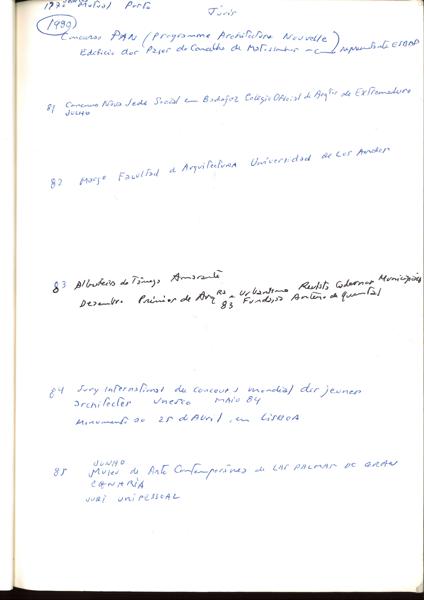 Mutual Porto
Júris
1980
Concurso PAN (Programme Architecture Nouvelle)
Edificio dos Paços do Concelho de Matosinhos - representante ESBAP
81 Concurso Nova Sede Social em Badajoz Colegio Oficial de Arqtos de Extremadura
JULHO
82 Março Facultad de Arquitectura Universidad de Los Andes
83 Albufeira do Tâmega Amarante
Dezembro Prémios de Arqra e Urbanismo Revista Cadernos Municipais
83 Fundação Antero de Quental
84 Jury International du concours mondial des jeunes
architectes Unesco MAIO 84
Monumento ao 25 de Abril, em LISBOA
JUNHO
85 Museu de Arte Contemporânea de LAS PALMAS DE GRAN
CANARIA
JURI UNIPESSOAL